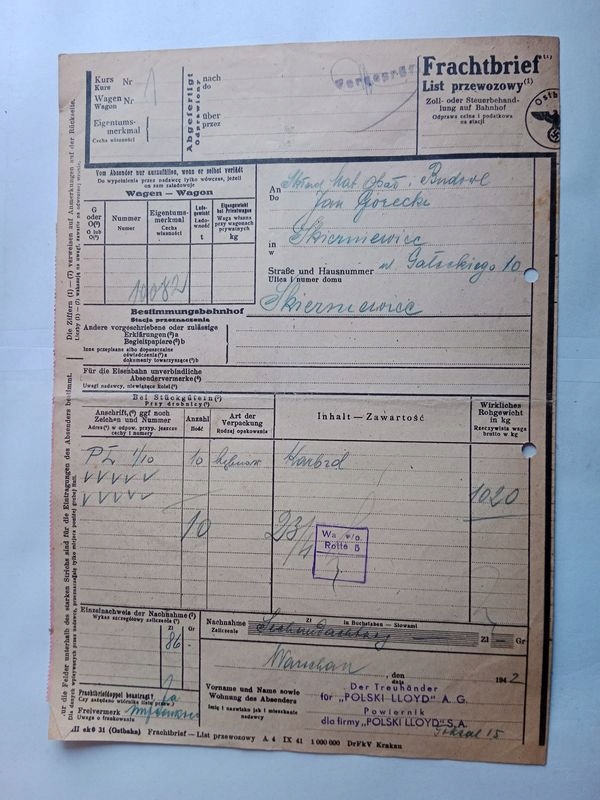 Kurs
Kurs
Nr 1
Wagen
Wagon
Nr
Eigentums-
merkmal
Cecha własności
Abgefertigt
Odprawiono
nach
do
über
przez
Frachtbrief
List przewozowy(1)
Zoll- oder Steuerbehand-
lung auf Bahnhof
Odprawa celna i podatkowa
na stacji
Ostb
Die Ziffern (1) — (7) verweisen auf Anmerkungen auf der Rückseite.
Vom Absender nur auszufüllen, wenn er selbst verlädt
Do wypełnienia przez nadawcę tylko wówczas, jeżeli
on sam załadowuje
Wagen — Wagon
G
oder
O(2)
G lub
O(2)
Nummer
Numer
Eigentums-
merkmal
Cecha
własności
Lade-
gewicht
Łado-
wność
t
Eigengewicht
bei Privatwagen
Waga własna
przy wagonach
prywatnych
kg
10082
An
Do
Jan Górecki
in
w
Skierniewice
Straße und Hausnummer
Ulica i numer domu
10
Skierniewice
Bestimmungsbahnhof
Stacja przeznaczenia
Andere vorgeschriebene oder zulässige
Erklärungen(3)a
Begleitpapiere(3)b
Inne przepisane albo dopuszczalne
oświadczenia(3)a
dokumenty towarzyszące(3)b
Für die Eisenbahn unverbindliche
Absendervermerke(4)
Uwagi nadawcy, niewiążące kolei(4)
Bei Stückgütern(5)
Przy drobnicy(5)
Anschrift,(6) ggf noch
Zeichen und Nummer
Adres(6) w odpow. przyp. jeszcze
cechy i numery
Anzahl
Ilość
Art der
Verpackung
Rodzaj opakowania
Inhalt — Zawartość
Wirkliches
Rohgewicht
in kg
Rzeczywista waga
brutto w kg
PL 1/10
10
Karbid
1020
10
23/4
Wa v/o.
Rotte 5
Einzelnachweis der Nachnahme(7)
Wykaz szczegółowy zaliczenia(7)
Zl
86 -
Nachnahme
Zaliczenie
Zl in Buchstaben — Słowami
Zl — Gr
Warschau, den
dnia
1942
Frachtbriefdoppel beantragt?
Czy zażądano wtórnika listu przew.?
Ja
Freivermerk
Uwaga o frankowaniu
Vorname und Name sowie
Wohnung des Absenders
Imię i nazwisko jak i mieszkanie
nadawcy
Der Treuhänder
für „POLSKI LLOYD" A. G.
Powiernik
dla firmy „POLSKI LLOYD" S. A.
15
31 (Ostbahn) Frachtbrief — List przewozowy A 4 IX 41 1 000 000 DrFkV Krakau